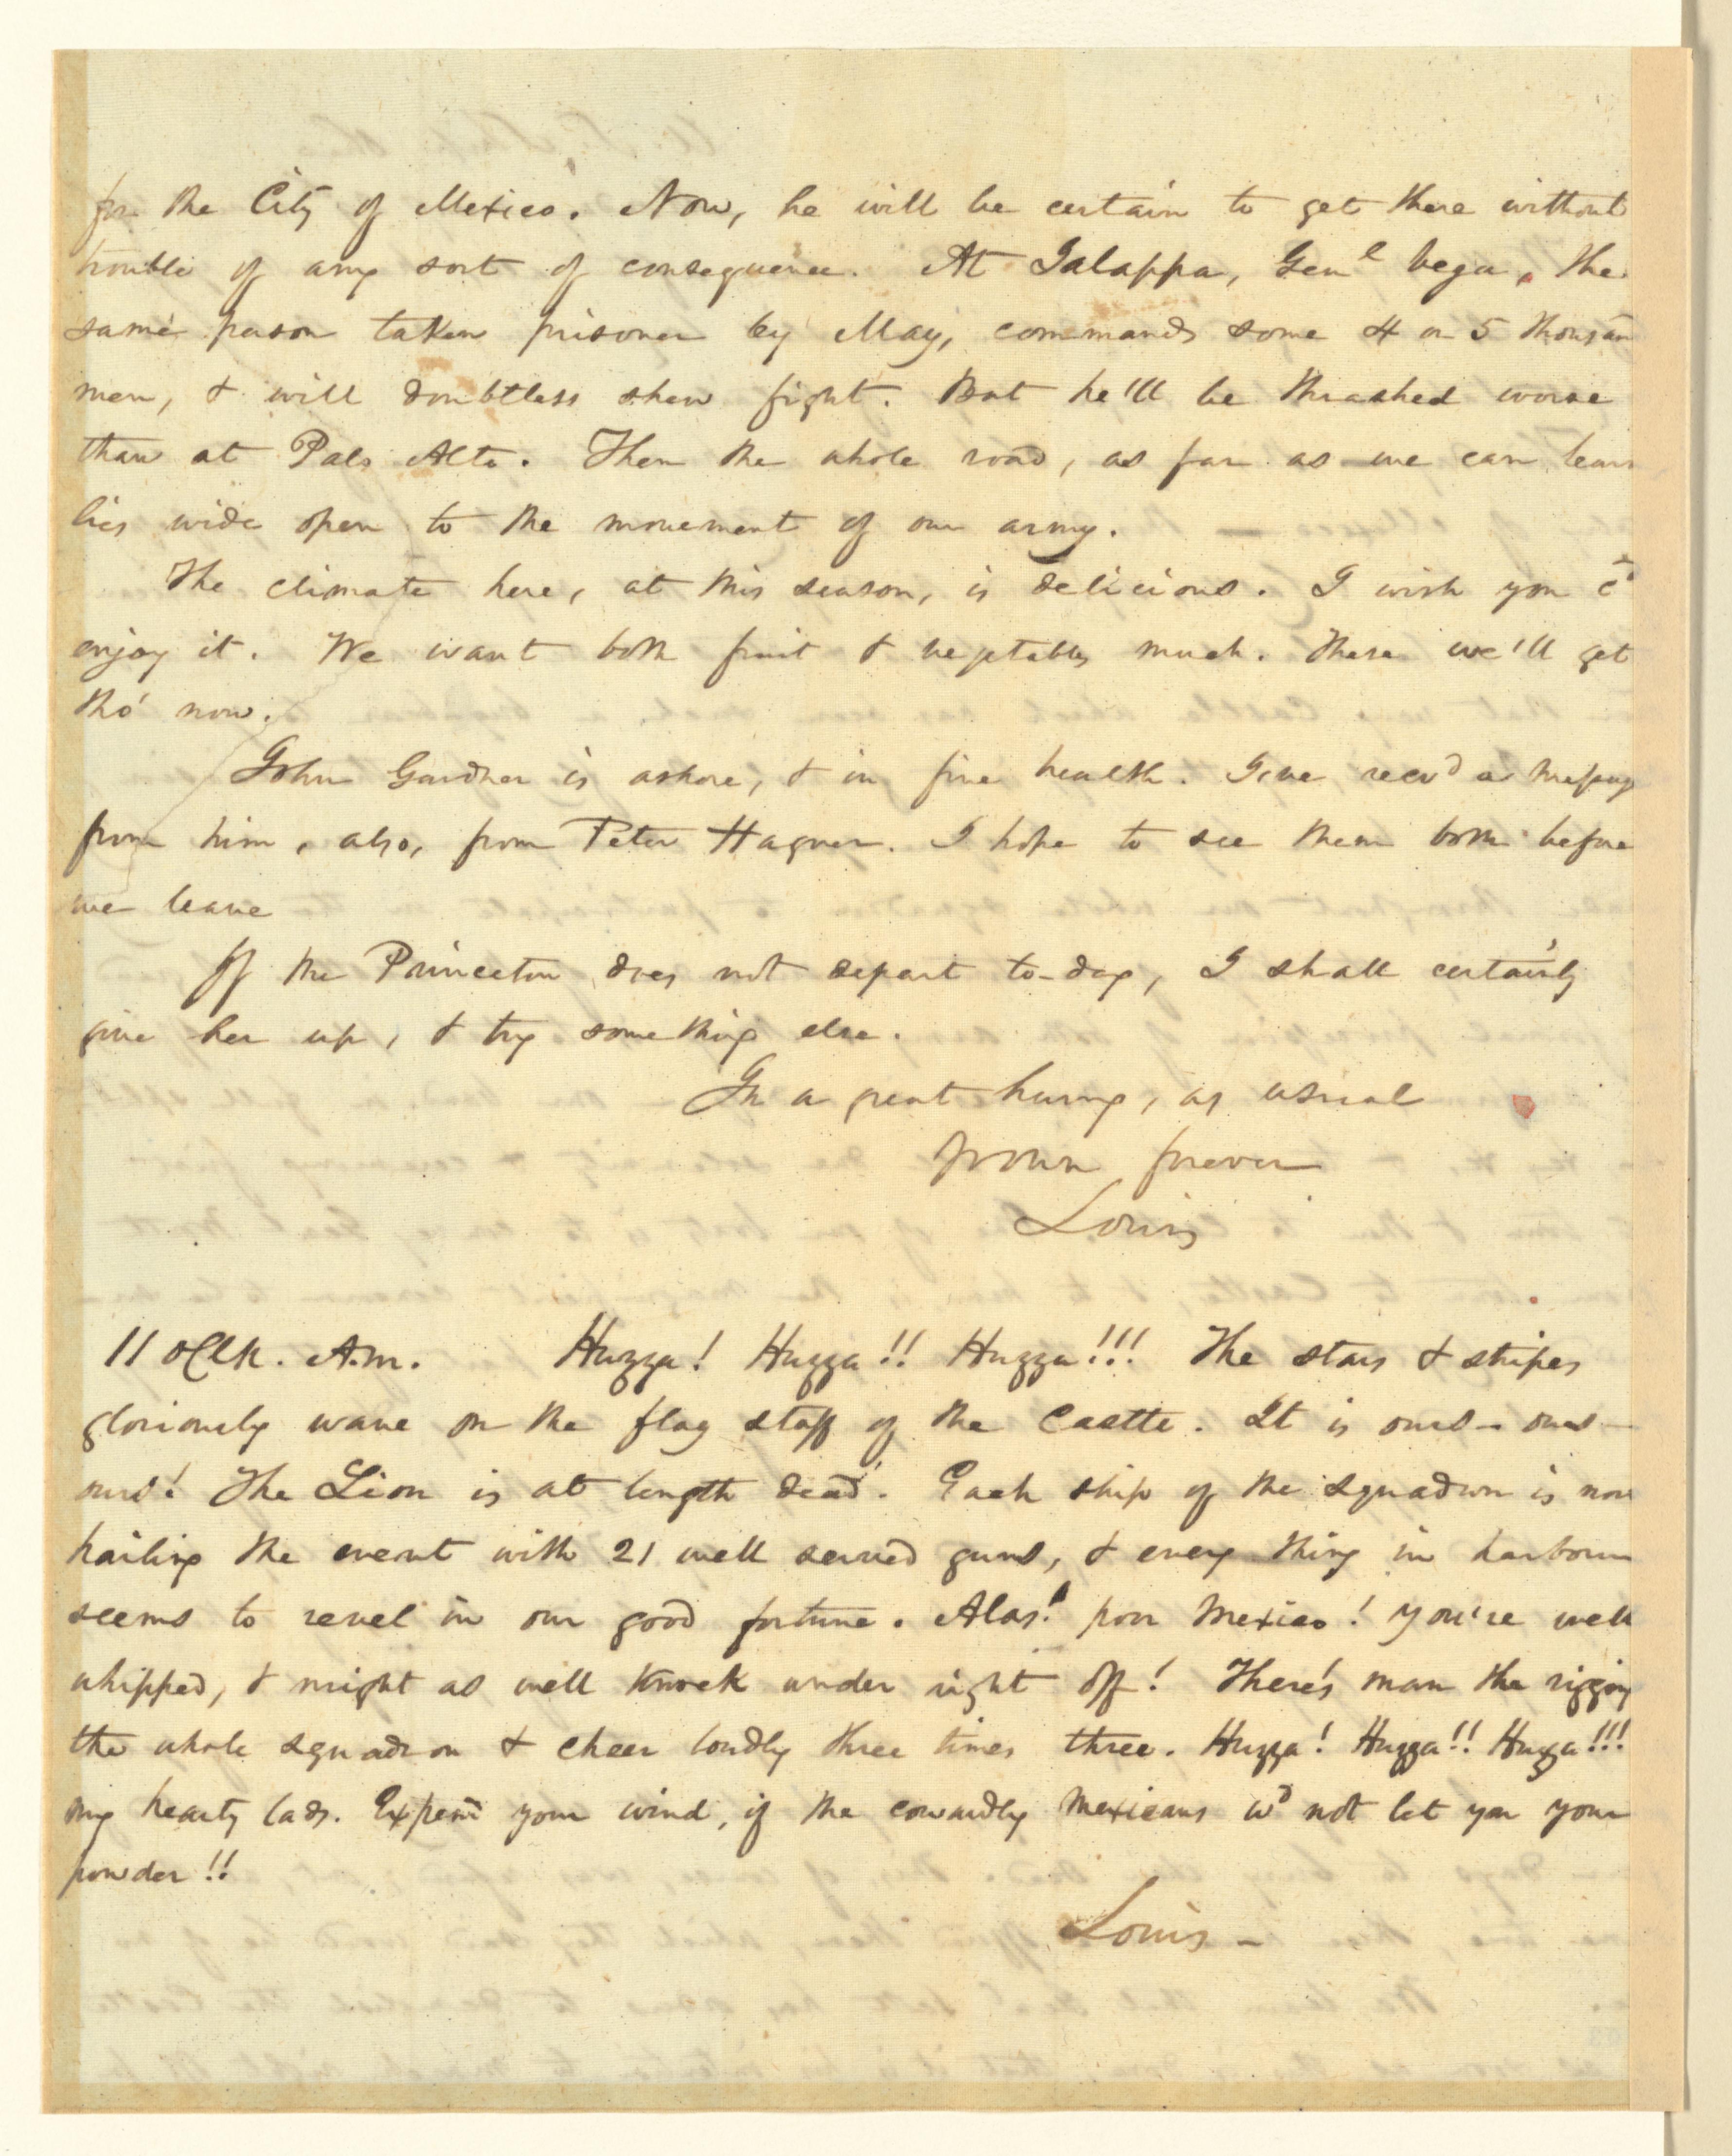 for the City of Mexico. Now, he will be certain to get there without
trouble of any sort of consequence. At Jalappa, Genl Vega, the
same person taken prisoner by May, commands some 4 or 5 thousan
men, & will doubtless show fight. But he'll be thrashed worse
than at Palo Alto. Then the whole road, as far as we can learn
lies wide open to the movement of our army.
The climate here, at this season, is delicious. I wish you cd
enjoy it. We want both fruit & vegetables much. These we'll get
tho' now.
John Gardner is ashore, & in fine health. I've recvd a message
from him, also, from Peter Hagner. I hope to see them both before
we leave
If the Princeton does not depart to-day, I shall certainly
give her up, & try something else.
In a great hurry, as usual
yours forever
Louis
11 oClk. A.m. Huzza! Huzza!! Huzza!!! The stars & stripes
gloriously wave on the flag staff of the Castle. It is ours - ours -
ours! The Lion is at length dead. Each ship of the squadron is now
hailing the event with 21 well served guns, & every thing in harbour
seems to revel in our good fortune. Alas! poor Mexico! you're well
whipped, & might as well knock under right off! There's man the rigging
the whole squadron & cheer loudly three times three. Huzza! Huzza!! Huzza!!!
my hearty lads. Expend your wind, if the cowardly Mexicans wd not let you your
powder!!
Louis -